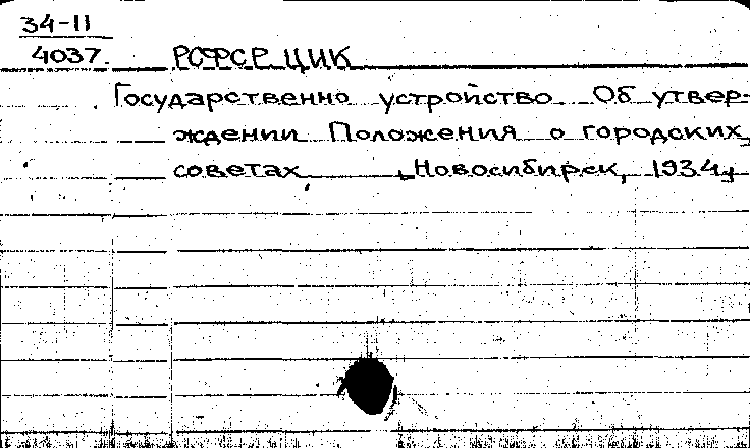 34-II
4037. РСФСР ЦИК
Государственно устройство. Об утвер-
ждении Положения о городских
советах, Новосибирск, 1934,